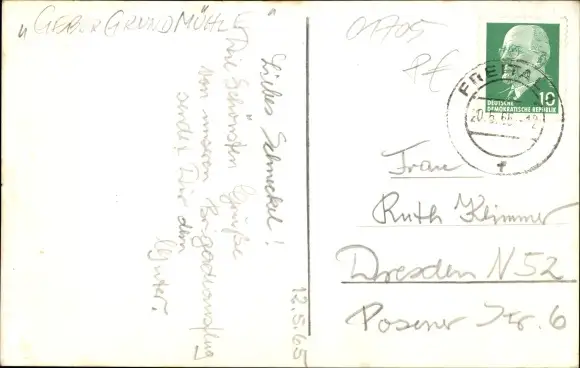 "GEBERGRUNDMÜHLE"
Liebes Schneckel!
Die Schönsten Grüße
von unserem Brigadeausflug
sendet Dir dein
Günter.
12.5.65
01705
P€
DEUTSCHE
DEMOKRATISCHE REPUBLIK
10
FREITAL
f
Frau
Ruth Klimmer
Dresden N52
Posener Str. 6